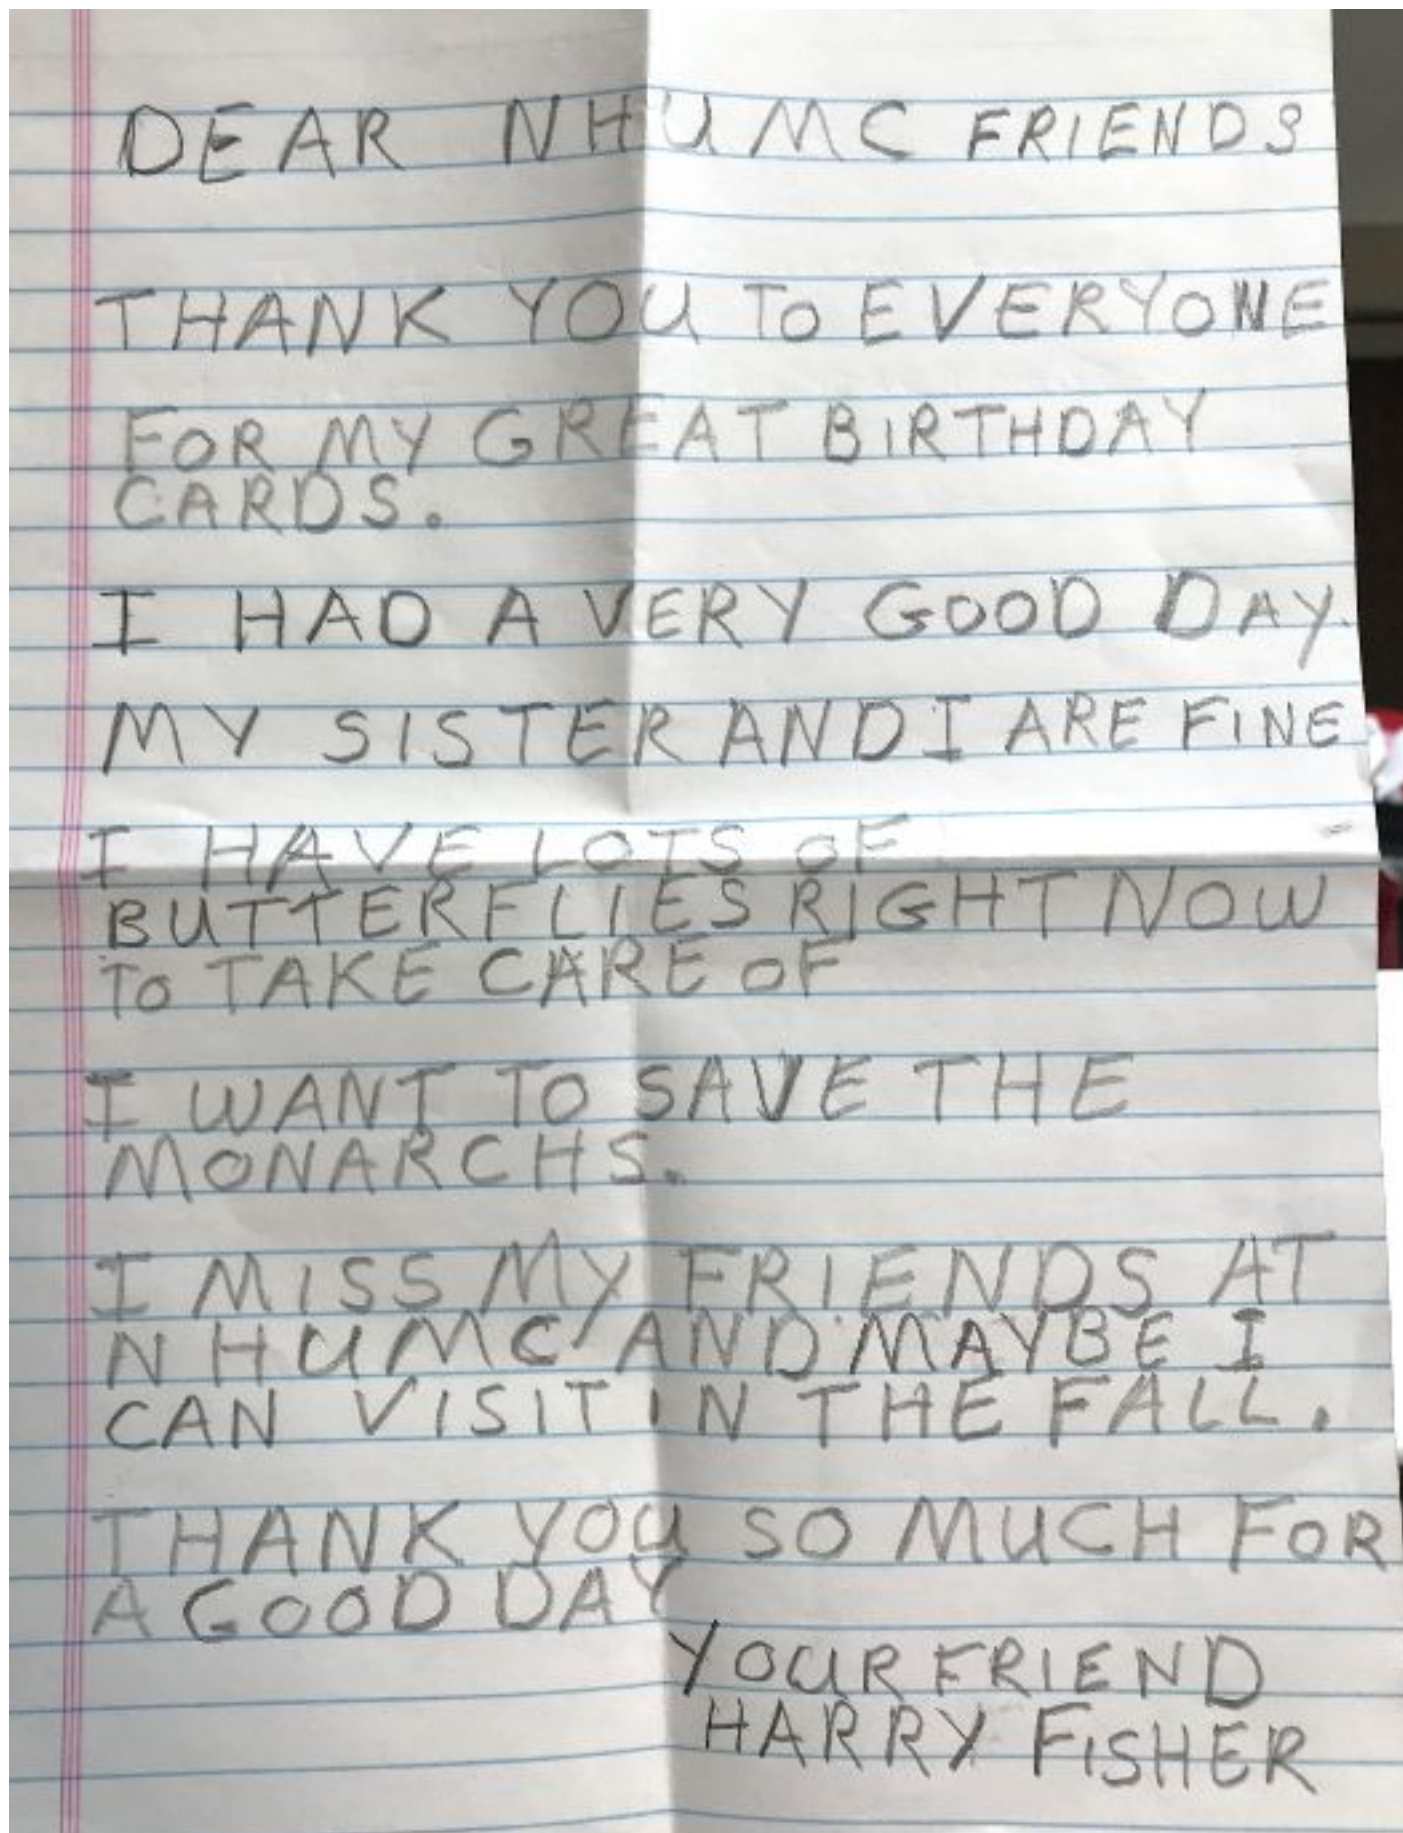 DEAR NHUMC FRIENDS
THANK YOU TO EVERYONE
FOR MY GREAT BIRTHDAY
CARDS.
I HAD A VERY GOOD DAY.
MY SISTER AND I ARE FINE
I HAVE LOTS OF
BUTTERFLIES RIGHT NOW
TO TAKE CARE OF
I WANT TO SAVE THE
MONARCHS.
I MISS MY FRIENDS AT
NHUMC AND MAYBE I
CAN VISIT IN THE FALL.
THANK YOU SO MUCH FOR
A GOOD DAY
YOUR FRIEND
HARRY FISHER